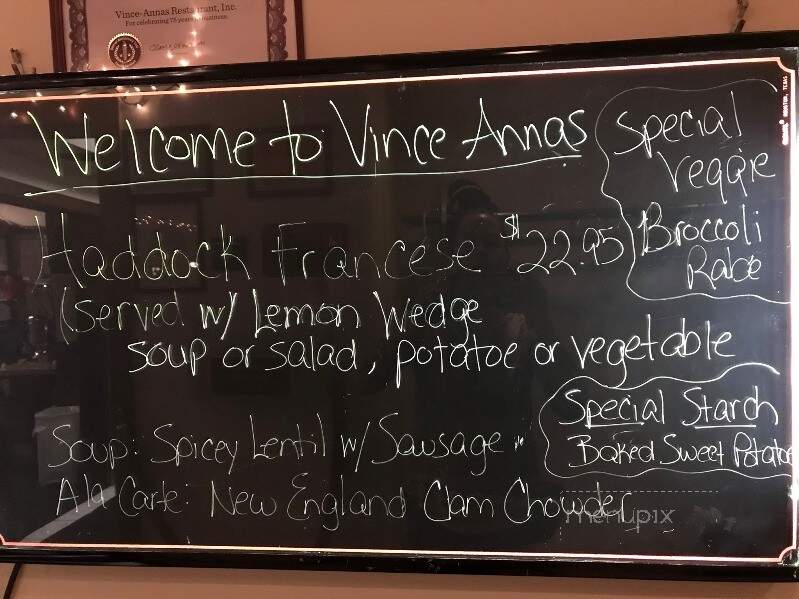 Vince-Annas Restaurant, Inc.
For celebrating 75 years
Welcome to Vince Annas
Special
Veggie
Broccoli
Rabe
Haddock Francese $22.95
(served w/ Lemon Wedge
soup or salad, potatoe or vegetable
Special Starch
Baked Sweet Potatoe
Soup: Spicey Lentil w/ Sausage
Ala Carte: New England Clam Chowder
menupix